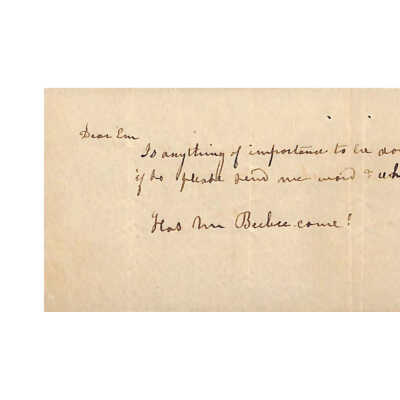 Dear Em
Is anything of importance to be do
if so please send me word & wh
Has Mr Beebee come?